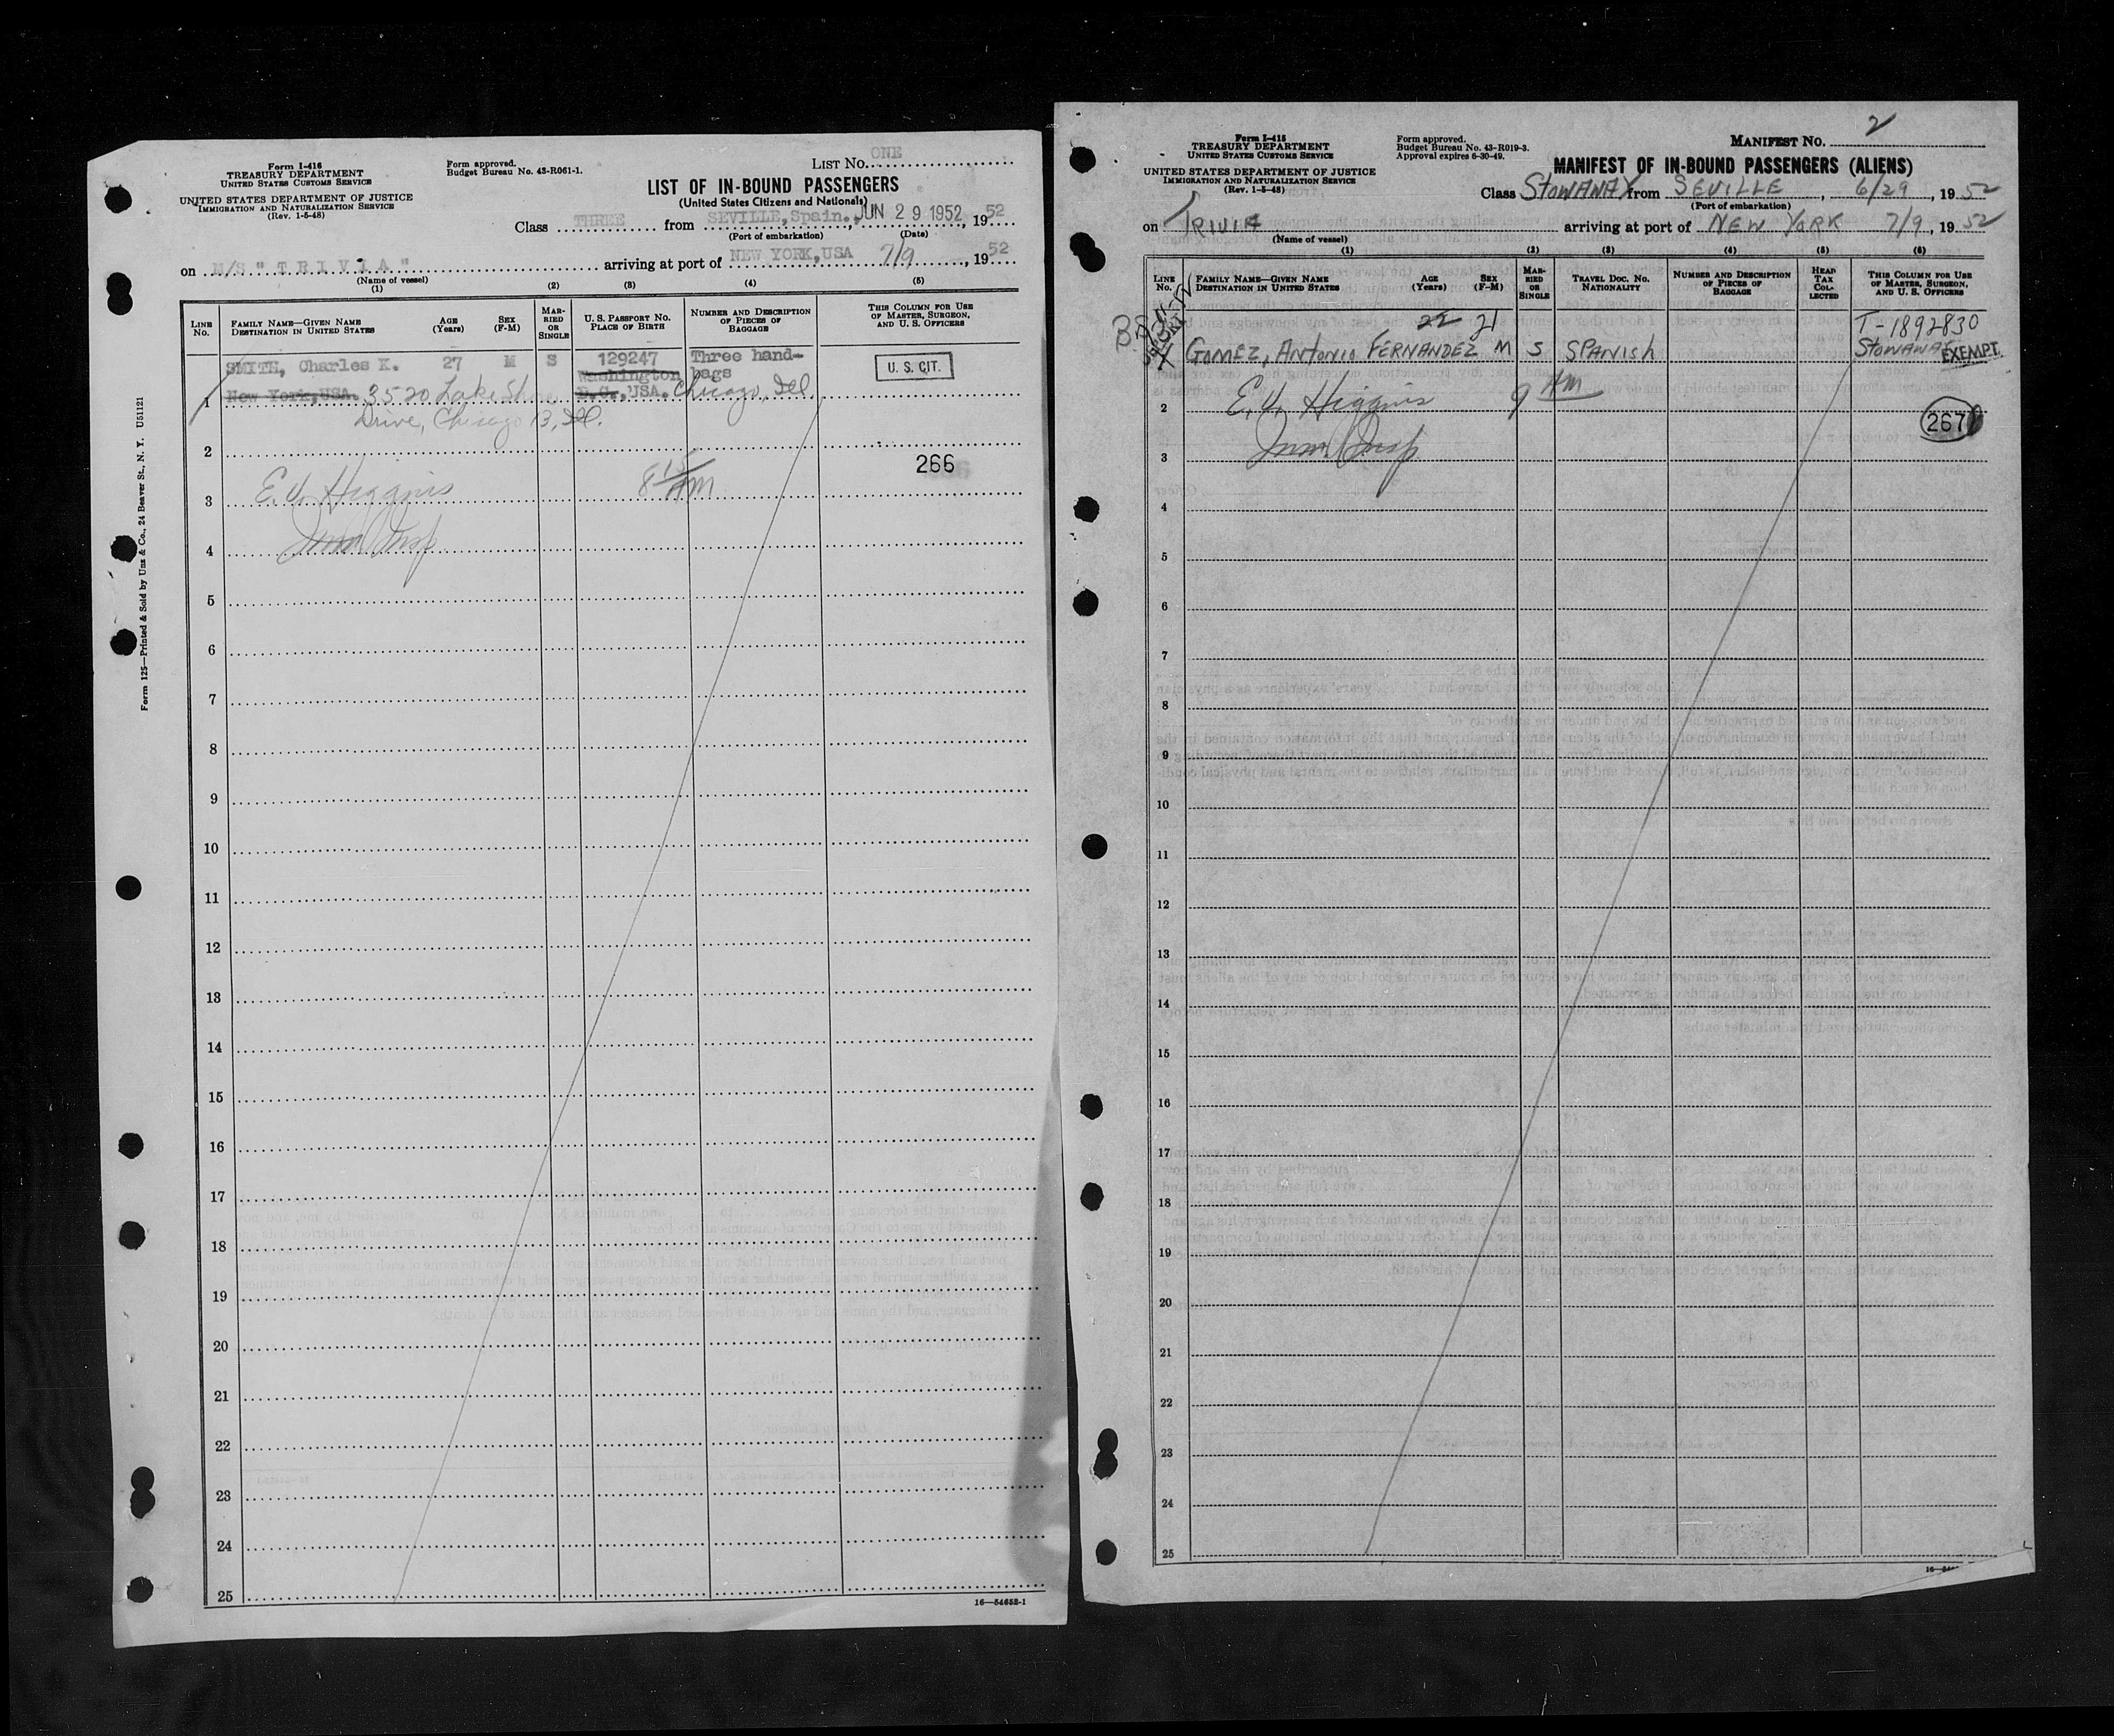 Form I-416
TREASURY DEPARTMENT
UNITED STATES CUSTOMS SERVICE
UNITED STATES DEPARTMENT OF JUSTICE
IMMIGRATION AND NATURALIZATION SERVICE
(Rev. 1-5-48)
Form approved.
Budget Bureau No. 43-R061-1.
LIST No. ONE
LIST OF IN-BOUND PASSENGERS
(United States Citizens and Nationals)
Class THREE from SEVILLE, Spain., JUN 29 1952, 1952
(Port of embarkation) (Date)
on M/S "TRIVIA" arriving at port of NEW YORK, USA 7/9, 1952
(Name of vessel)
(1) (2) (3) (4) (5)
LINE No.
FAMILY NAME—GIVEN NAME
DESTINATION IN UNITED STATES
AGE (Years)
SEX (F-M)
MARRIED OR SINGLE
U. S. PASSPORT NO.
PLACE OF BIRTH
NUMBER AND DESCRIPTION OF PIECES OF BAGGAGE
THIS COLUMN FOR USE OF MASTER, SURGEON, AND U. S. OFFICERS
SMITH, Charles K. 27 M S 129247 Three hand-
Washington bags U. S. CIT.
1 New York, USA. 3520 Lake Shore D.C., USA. Chicago, Ill.
Drive, Chicago 13, Ill.
2
266
3 E. V. Higgins 8 15 AM
Imm Insp
4
5
6
7
8
9
10
11
12
13
14
15
16
17
18
19
20
21
22
23
24
25
16—54652-1
Form 125—Printed & Sold by Unz & Co., 24 Beaver St., N. Y. U51121
Form I-415
TREASURY DEPARTMENT
UNITED STATES CUSTOMS SERVICE
UNITED STATES DEPARTMENT OF JUSTICE
IMMIGRATION AND NATURALIZATION SERVICE
(Rev. 1-5-48)
Form approved.
Budget Bureau No. 43-R019-3.
Approval expires 6-30-49.
MANIFEST NO. 2
MANIFEST OF IN-BOUND PASSENGERS (ALIENS)
Class STOWAWAY from SEVILLE, 6/29, 1952
(Port of embarkation)
on TRIVIA arriving at port of NEW YORK 7/9, 1952
(Name of vessel)
(1) (2) (3) (4) (5) (6)
LINE No.
FAMILY NAME—GIVEN NAME
DESTINATION IN UNITED STATES
AGE (Years)
SEX (F-M)
MARRIED OR SINGLE
TRAVEL DOC. NO.
NATIONALITY
NUMBER AND DESCRIPTION OF PIECES OF BAGGAGE
HEAD TAX COLLECTED
THIS COLUMN FOR USE OF MASTER, SURGEON, AND U. S. OFFICERS
22 21 T-1892830
GOMEZ, Antonio FERNANDEZ M S SPANISH STOWAWAY EXEMPT
2 E. V. Higgins 9 AM
267
3 Imm Insp
4
5
6
7
8
9
10
11
12
13
14
15
16
17
18
19
20
21
22
23
24
25